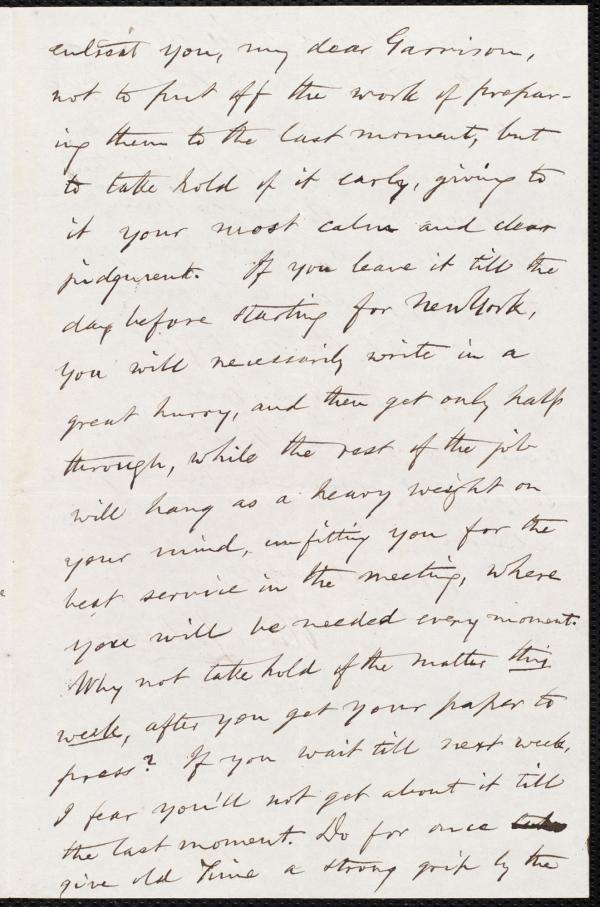 entreat you, my dear Garrison,
not to put off the work of prepar-
ing them to the last moment, but
to take hold of it early, giving to
it your most calm and clear
judgment. If you leave it till the
day before starting for New York,
you will necessarily write in a
great hurry, and then get only half
through, while the rest of the job
will hang as a heavy weight on
your mind, unfitting you for the
best service in the meeting, where
you will be needed every moment.
Why not take hold of the matter this
week, after you get your paper to
press? If you wait till next week,
I fear you'll not get about it till
the last moment. Do for once
give old Time a strong grip by the